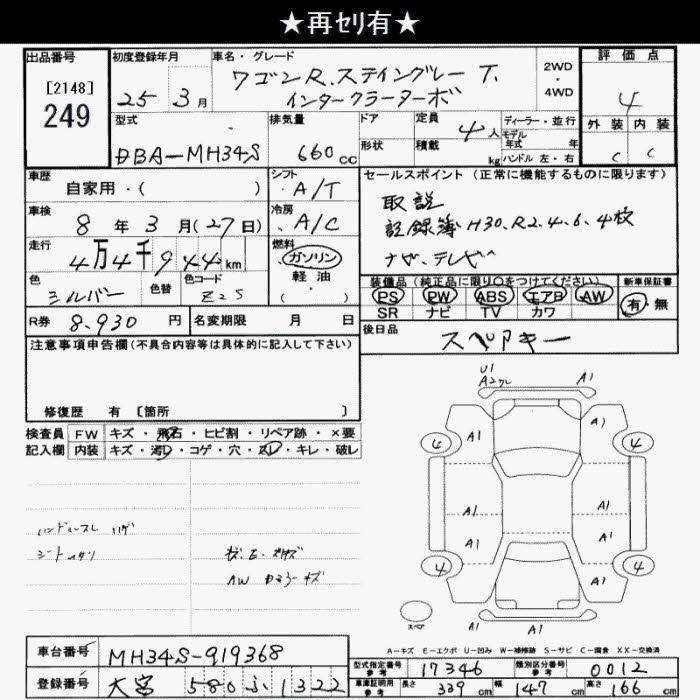 ★再セリ有★
出品番号
[2148]
249
初度登録年月
25 3月
車名・グレード
ワゴンR.スティングレー T.
インタークーラーターボ
2WD
・
4WD
評価点
4
外装 内装
C C
型式
DBA-MH34S
排気量
660cc
ドア
形状
定員
4人
積載
kg
ディーラー・並行
モデル
年式 年
ハンドル 左・右
車歴
自家用・( )
シフト
A/T
車検
8年3月(27日)
冷房
A/C
走行
4万4千944km
燃料
ガソリン
軽油
( )
色
シルバー
色替
色コード
Z2S
R券 8.930円
名変期限 月 日
セールスポイント(正常に機能するものに限ります)
取説
記録簿 H30.R2.4.6.4枚
ナビ.テレビ
装備品(純正品に限り○をつけてください)
PS PW ABS エアB AW
SR ナビ TV カワ
新車保証書
有・無
後日品
スペアキー
注意事項申告欄(不具合内容等は具体的に記入して下さい)
修復歴 有 [箇所 ]
検査員
記入欄
FW キズ・飛石・ヒビ割・リペア跡・×要
内装 キズ・汚レ・コゲ・穴・スレ・キレ・破レ
AW
U1
A1
A1 A1
4 4
A1 A1
A1 A1
A1 A1
4 4
A1 A1
スペア
A-キズ E-エクボ U-凹み W-補修跡 S-サビ C-腐食 XX-交換済
車台番号 MH34S-919368
登録番号 大宮 580 ふ 1322
型式指定番号
参考
17346
類別区分番号
参考
0012
車庫証明用
参考
長さ 339cm 幅 147cm 高さ 166cm